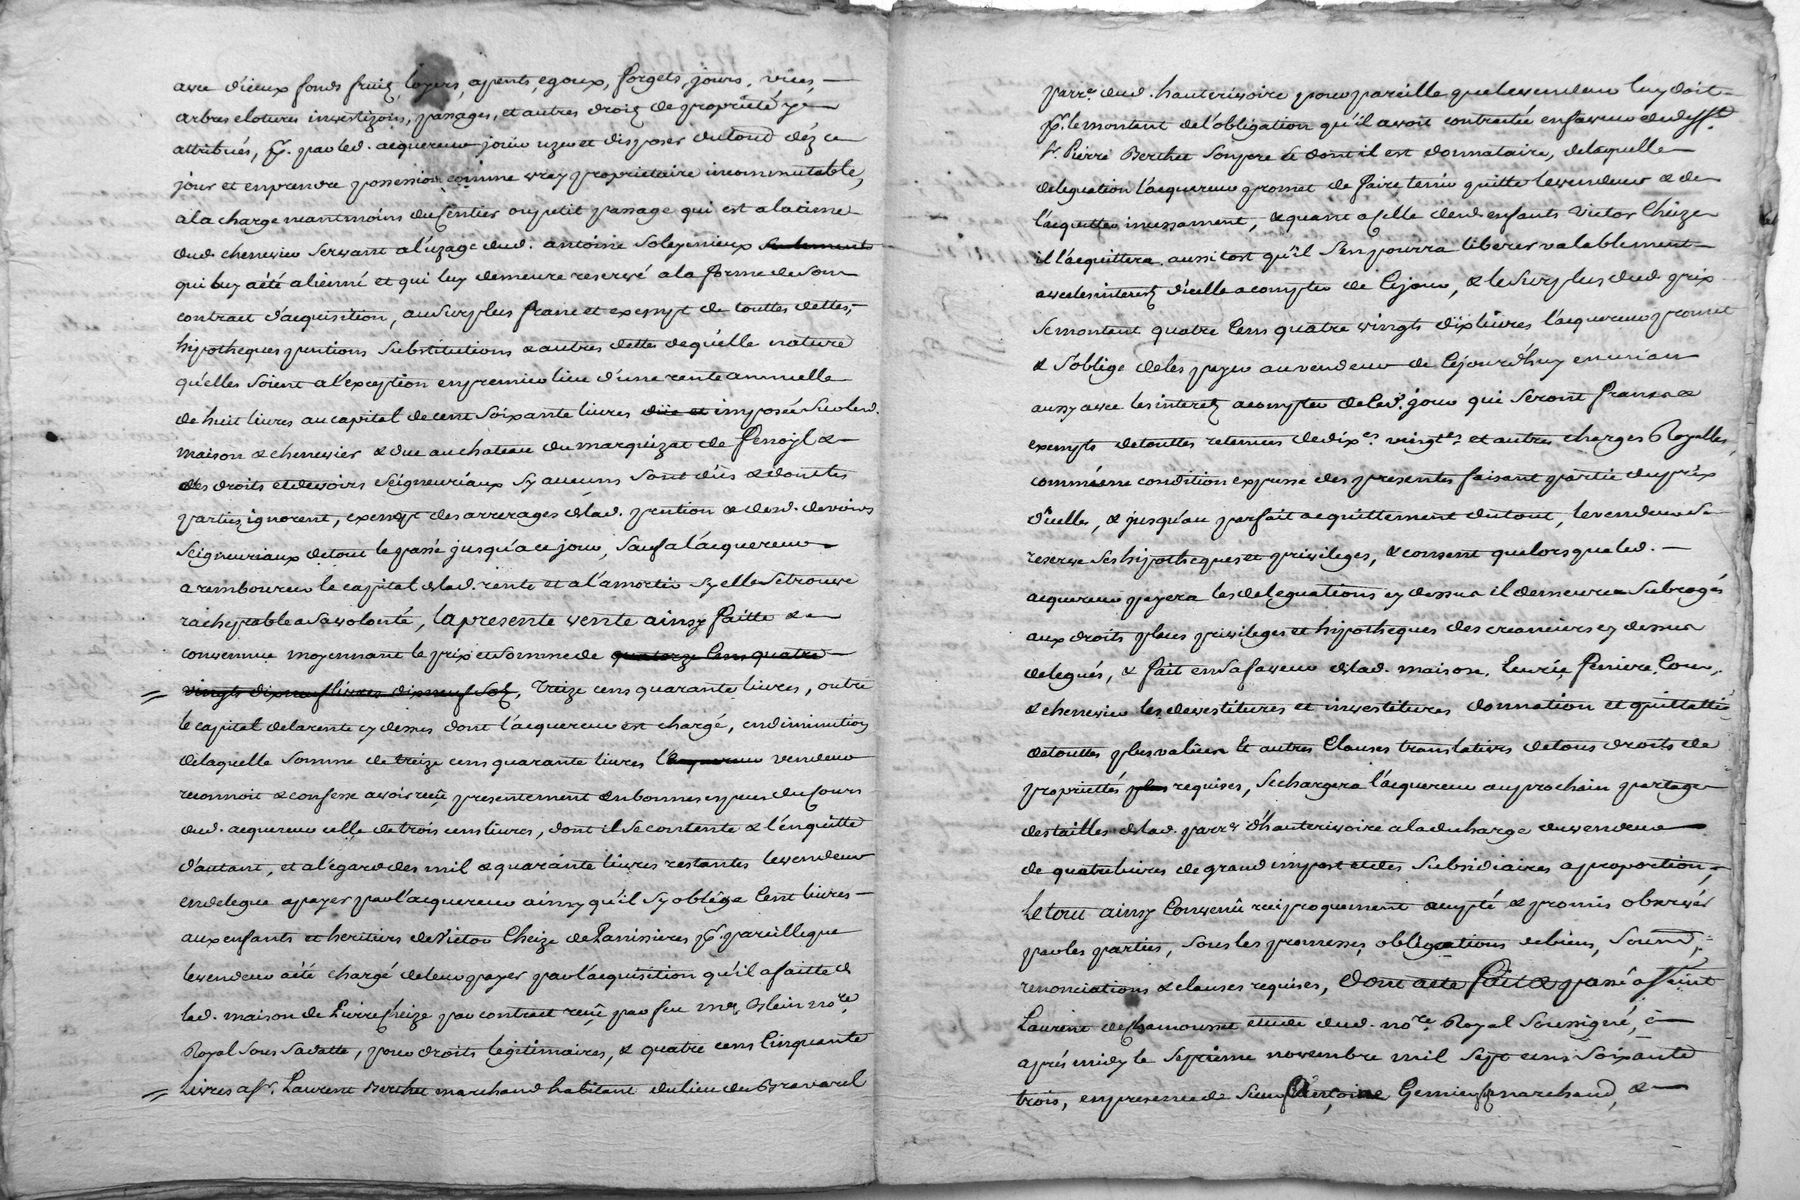 avec d'iceux fonds fruitz, loyers, apents, egoux, forgets, jours, vües,
arbres clotures investizons, passages, et autres droitz de propriété y
attribués, pr. par led. acquereur jouir uzer et disposer du tout déz ce
jour et en prendre possession comme vray proprietaire incommutable,
a la charge neantmoins du sentier ou petit passage qui est a la cime
dud. chenevier servant a l'uzage dud. antoine Soleymieux seulement
qui luy a été aliené et qui luy demeure reservé a la forme de son
contract d'acquisition, au surplus franc et exempt de touttes dettes,
hipotheques pentions substitutions & autres dettes de qu'elle nature
qu'elles soient a l'exception en premier lieu d'une rente annuelle
de huit livres au capital de cent soixante livres düe et imposée sur lesd.
maison & chenevier & due au chateau du marquizat de Penoyl &
des droits et devoirs seigneuriaux sy aucuns sont dûs & dont les
parties ignorent, exempt des arrerages de lad. pention & desd. devoirs
seigneuriaux de tout le passé jusqu'a ce jour, sauf a l'acquereur
a rembourcer le capital de lad. rente et a l'amortir sy elle se trouve
racheptable a sa volonté, la presente vente ainsy faitte &
convenue moyennant le prix et somme de quatorze cens quatre
vingts dix neuf livres dix neuf solz, treize cens quarante livres, outre
le capital de la rente cy dessus dont l'acquereur est chargé, en diminution
de laquelle somme de treize cens quarante livres l'acquereur vendeur
reconnoit & confesse avoir reçû presentement en bonnes especes du cours
dud. acquereur celle de trois cens livres, dont il se contente & l'enquitte
d'autant, et a l'égard des mil & quarante livres restantes le vendeur
en delegue a payer par l'acquereur ainsy qu'il s'y oblige cent livres
aux enfants et heritiers de Victor Cheize de Panissieres pr. pareille que
le vendeur a été chargé de leur payer par l'acquisition qu'il a faitte de
lad. maison de Pierre Cheize par contract reçû par feu me. Blein nore.
Royal sous sa datte, pour droits legitimaires, & quatre cens cinquante
livres a sr. Laurent Berthet marchand habitant du lieu du Bravaril
parre. dud. hauterivoire pour pareille que le vendeur luy doit
pr. le montant de l'obligation qu'il avoit contractée en faveur de defft.
sr. Pierre Berthet son pere & dont il est donnataire, de laquelle
delegation l'acquereur promet de faire tenir quitte le vendeur & de
l'acquitter incessament, & quant a celle desd. enfants Victor Cheize
il l'acquittera aussitost qu'il s'en pourra liberer valablement
avec les interetz d'icelle a compter de ce jour, & le surplus dud. prix
se montent quatre cens quatre vingts dix livres l'acquereur promet
& s'oblige de les payer au vendeur de ce jourd'huy en un an
aussy avec les interetz a compter de led. jour qui seront francs &
exempts de touttes retenues de dixes. vingtes. et autres charges Royalles,
comme une condition expresse des presentes faisant partie du prix
d'icelles, & jusqu'au parfait acquittement du tout, le vendeur se
reserve ses hipotheques et privileges, & consent que lors que led.
acquereur payera les delegations cy dessus il demeure subrogé
aux droits places privileges et hipotheques des creanciers cy dessus
delegués, & fait en sa faveur de lad. maison, Cour,
& chenevier les devestitures et investitures donnation et quittatte
de touttes plus values & autres clauses translatives de tous droits de
propriettés plus requises, se chargera l'acquereur au prochain partage
des tailles de lad. parre. d'hauterivoire a la decharge du vendeur
de quatre livres de grand impost et des subsidiaires a proportion,
Le tout ainsy convenû reciproquement accepté & promis observer
par les parties, sous les promesses, obligations de biens, soumns,
renonciations & clauses requises, dont acte fait & passé a saint
Laurent de chamousset etude dud. nore. Royal soussigné,
aprés midy le septième novembre mil sept cens soixante
trois, en presence de sieur Antoine marchand, &